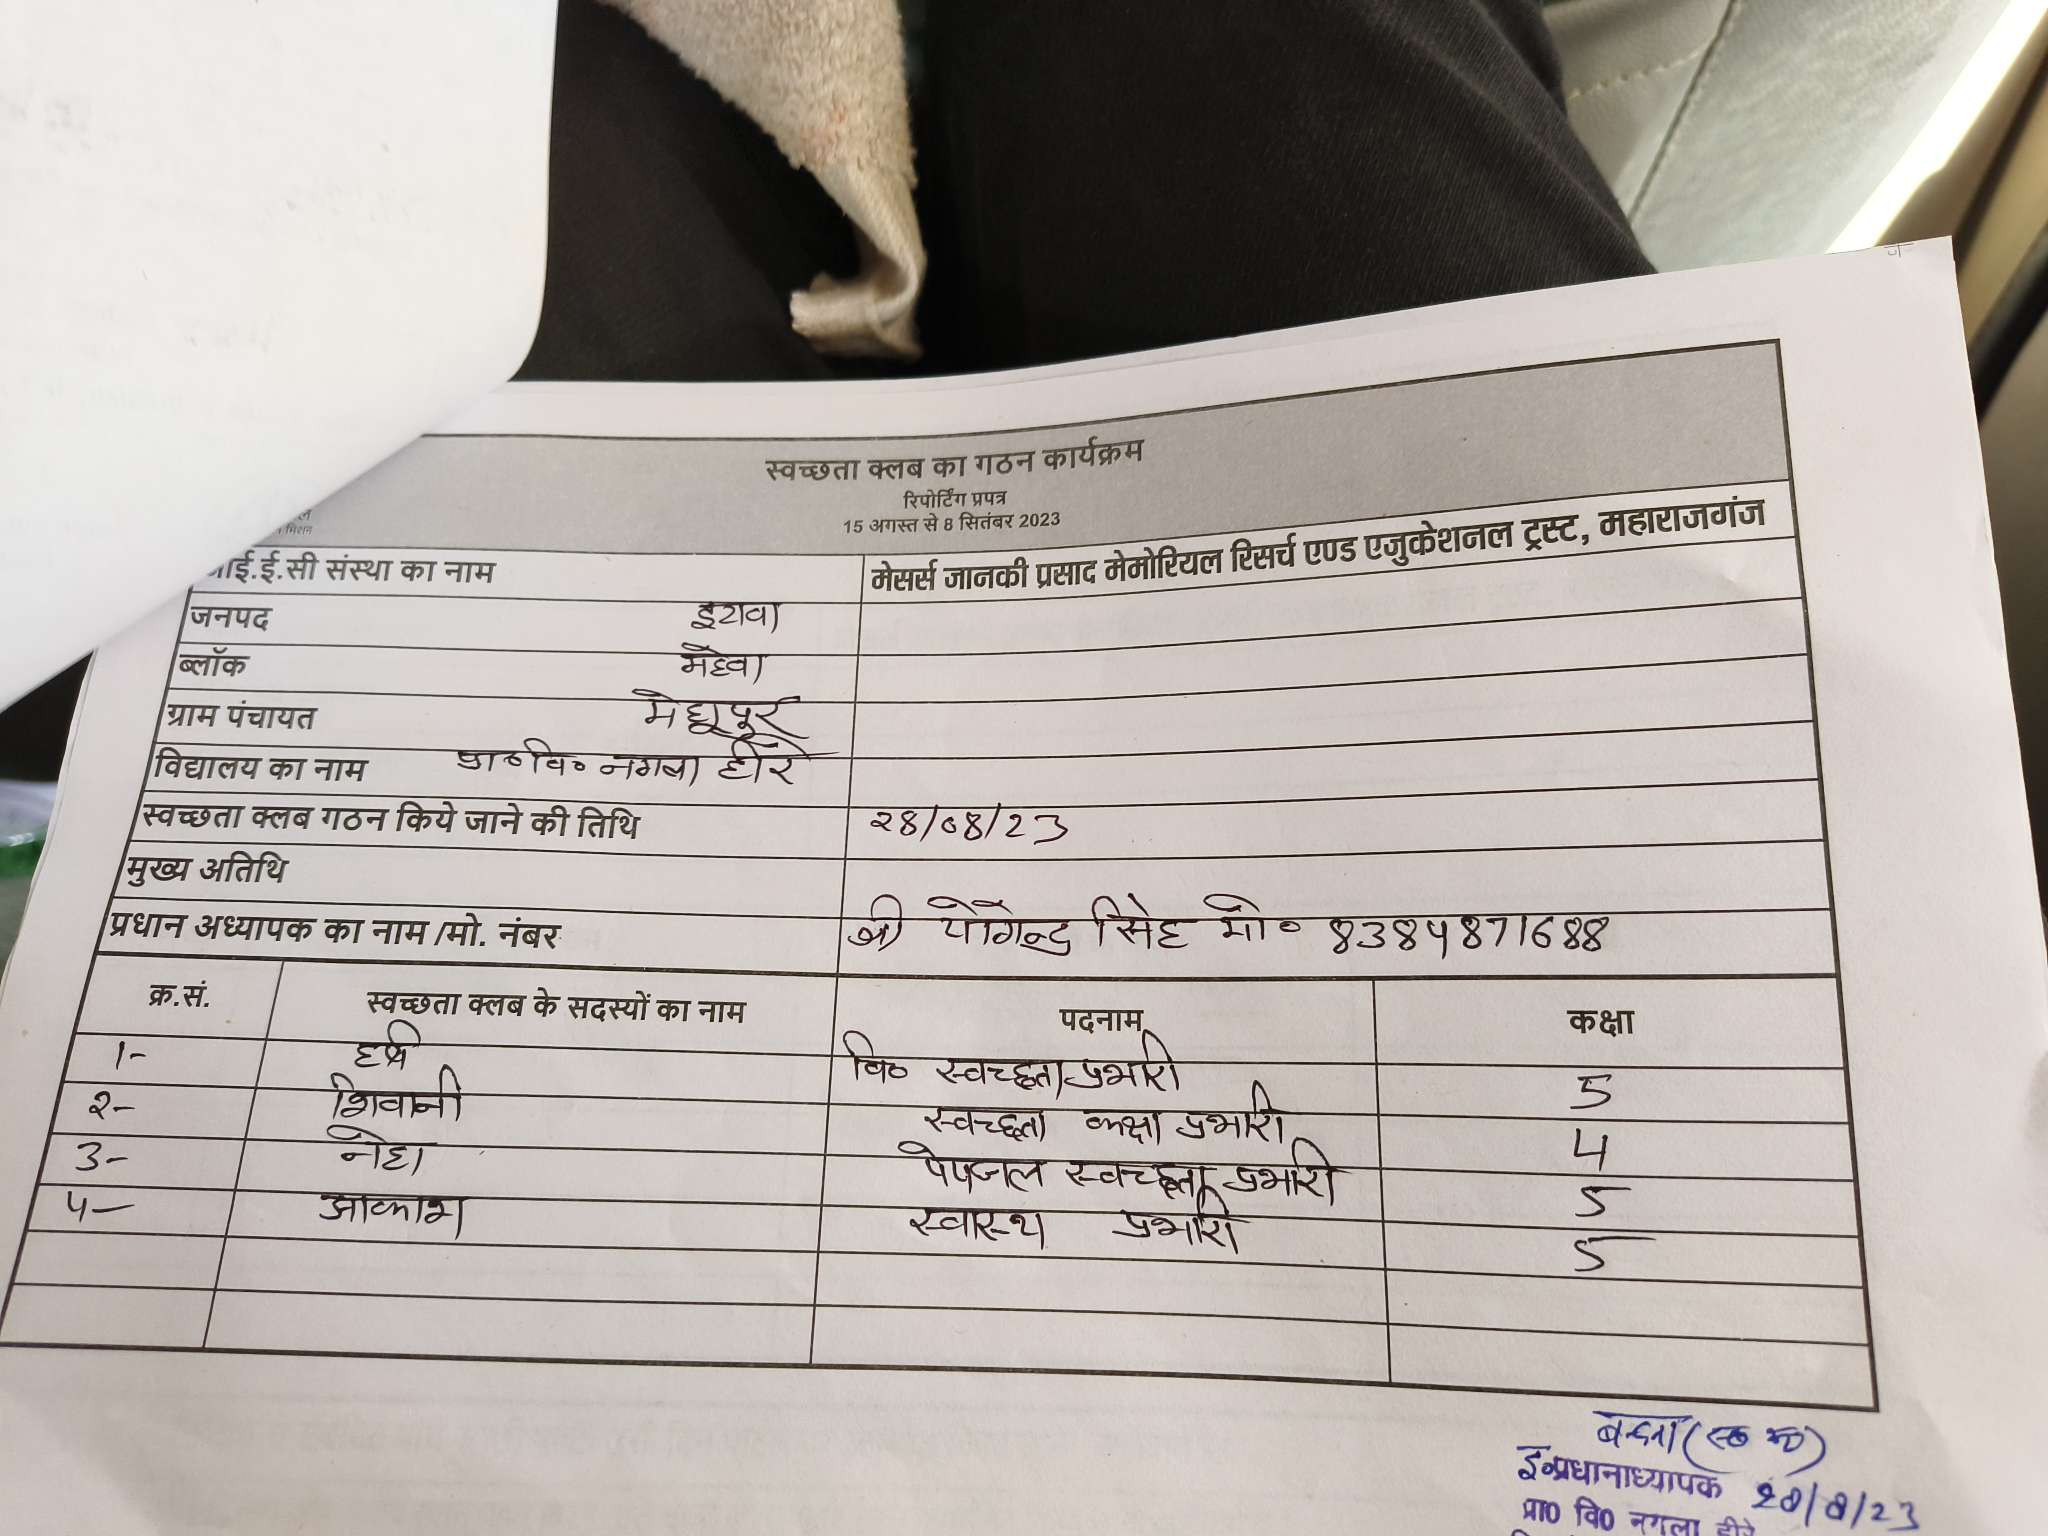 स्वच्छता क्लब का गठन कार्यक्रम
रिपोर्टिंग प्रपत्र
15 अगस्त से 8 सितंबर 2023
मिशन
आई.ई.सी संस्था का नाम मेसर्स जानकी प्रसाद मेमोरियल रिसर्च एण्ड एजुकेशनल ट्रस्ट, महाराजगंज
जनपद इटावा
ब्लॉक महेवा
ग्राम पंचायत
विद्यालय का नाम प्रा०वि० नगला हीरे
स्वच्छता क्लब गठन किये जाने की तिथि २8/08/23
मुख्य अतिथि
प्रधान अध्यापक का नाम/मो. नंबर श्री योगेन्द्र सिंह मो० 8384871688
क्र.सं. स्वच्छता क्लब के सदस्यों का नाम पदनाम कक्षा
1- वि० स्वच्छता प्रभारी 5
२- शिवानी स्वच्छता कक्षा प्रभारी 4
3- नेहा पेयजल स्वच्छता प्रभारी 5
५- आकाश स्वास्थ प्रभारी 5
(स० अ०)
इ०प्रधानाध्यापक 28/8/23
प्रा0 वि0 नगला हीरे